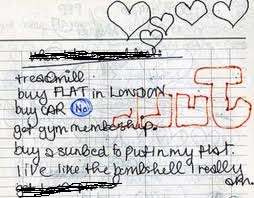 treadmill
buy FLAT in LONDON
buy CAR No
get gym membership.
buy a sunbed to put in my flat.
live like the bombshell I really
am.